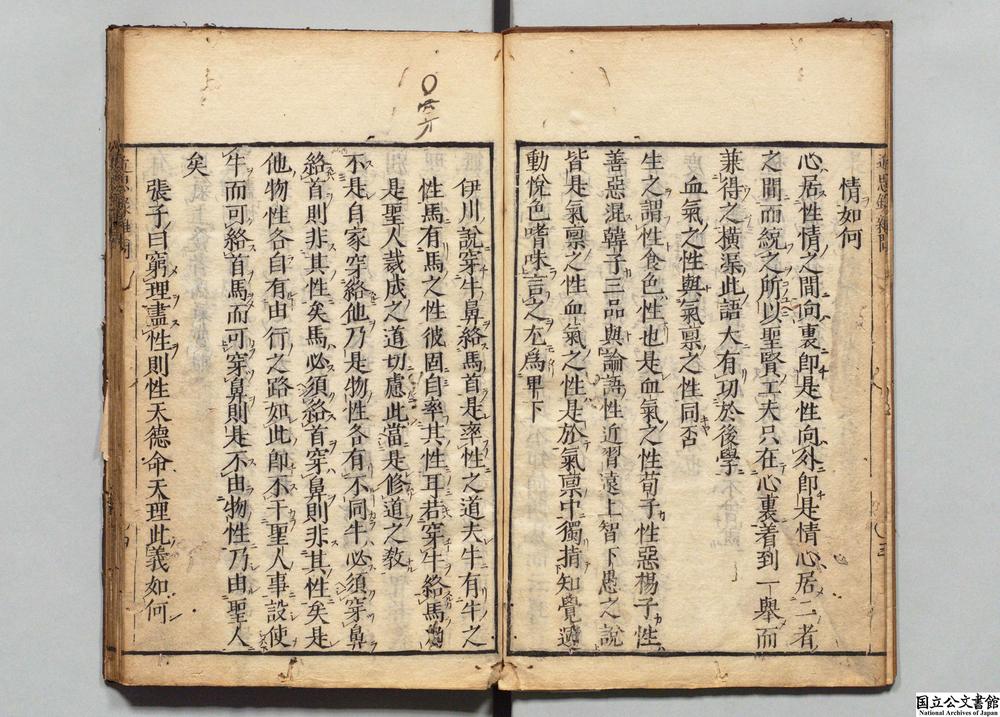 情如何
心居性情之間向裏即是性向外即是情心居二者
之間而統之所以聖賢工夫只在心裏着到一舉而
兼得之橫渠此語大有功於後學
血氣之性與氣禀之性同否
生之謂性食色性也是血氣之性荀子性惡楊子性
善惡混韓子三品與論語性近習遠上智下愚之說
皆是氣禀之性血氣之性是於氣禀中獨揹知覺運
動悅色嗜味言之尤爲卑下
伊川說穿牛鼻絡馬首是率性之道夫牛有牛之
性馬有馬之性彼固自率其性耳若穿牛絡馬
是聖人裁成之道切慮此當是修道之敎
不是自家穿絡他乃是物性各有不同牛必須穿鼻
絡首則非其性矣馬必須絡首穿鼻則非其性矣是
他物性各自有由行之路如此即不干聖人事設使
牛而可絡首馬而可穿鼻則是不由物性乃由聖人
矣
張子曰窮理盡性則性天德命天理此義如何
近思錄雜問
国立公文書館
National Archives of Japan